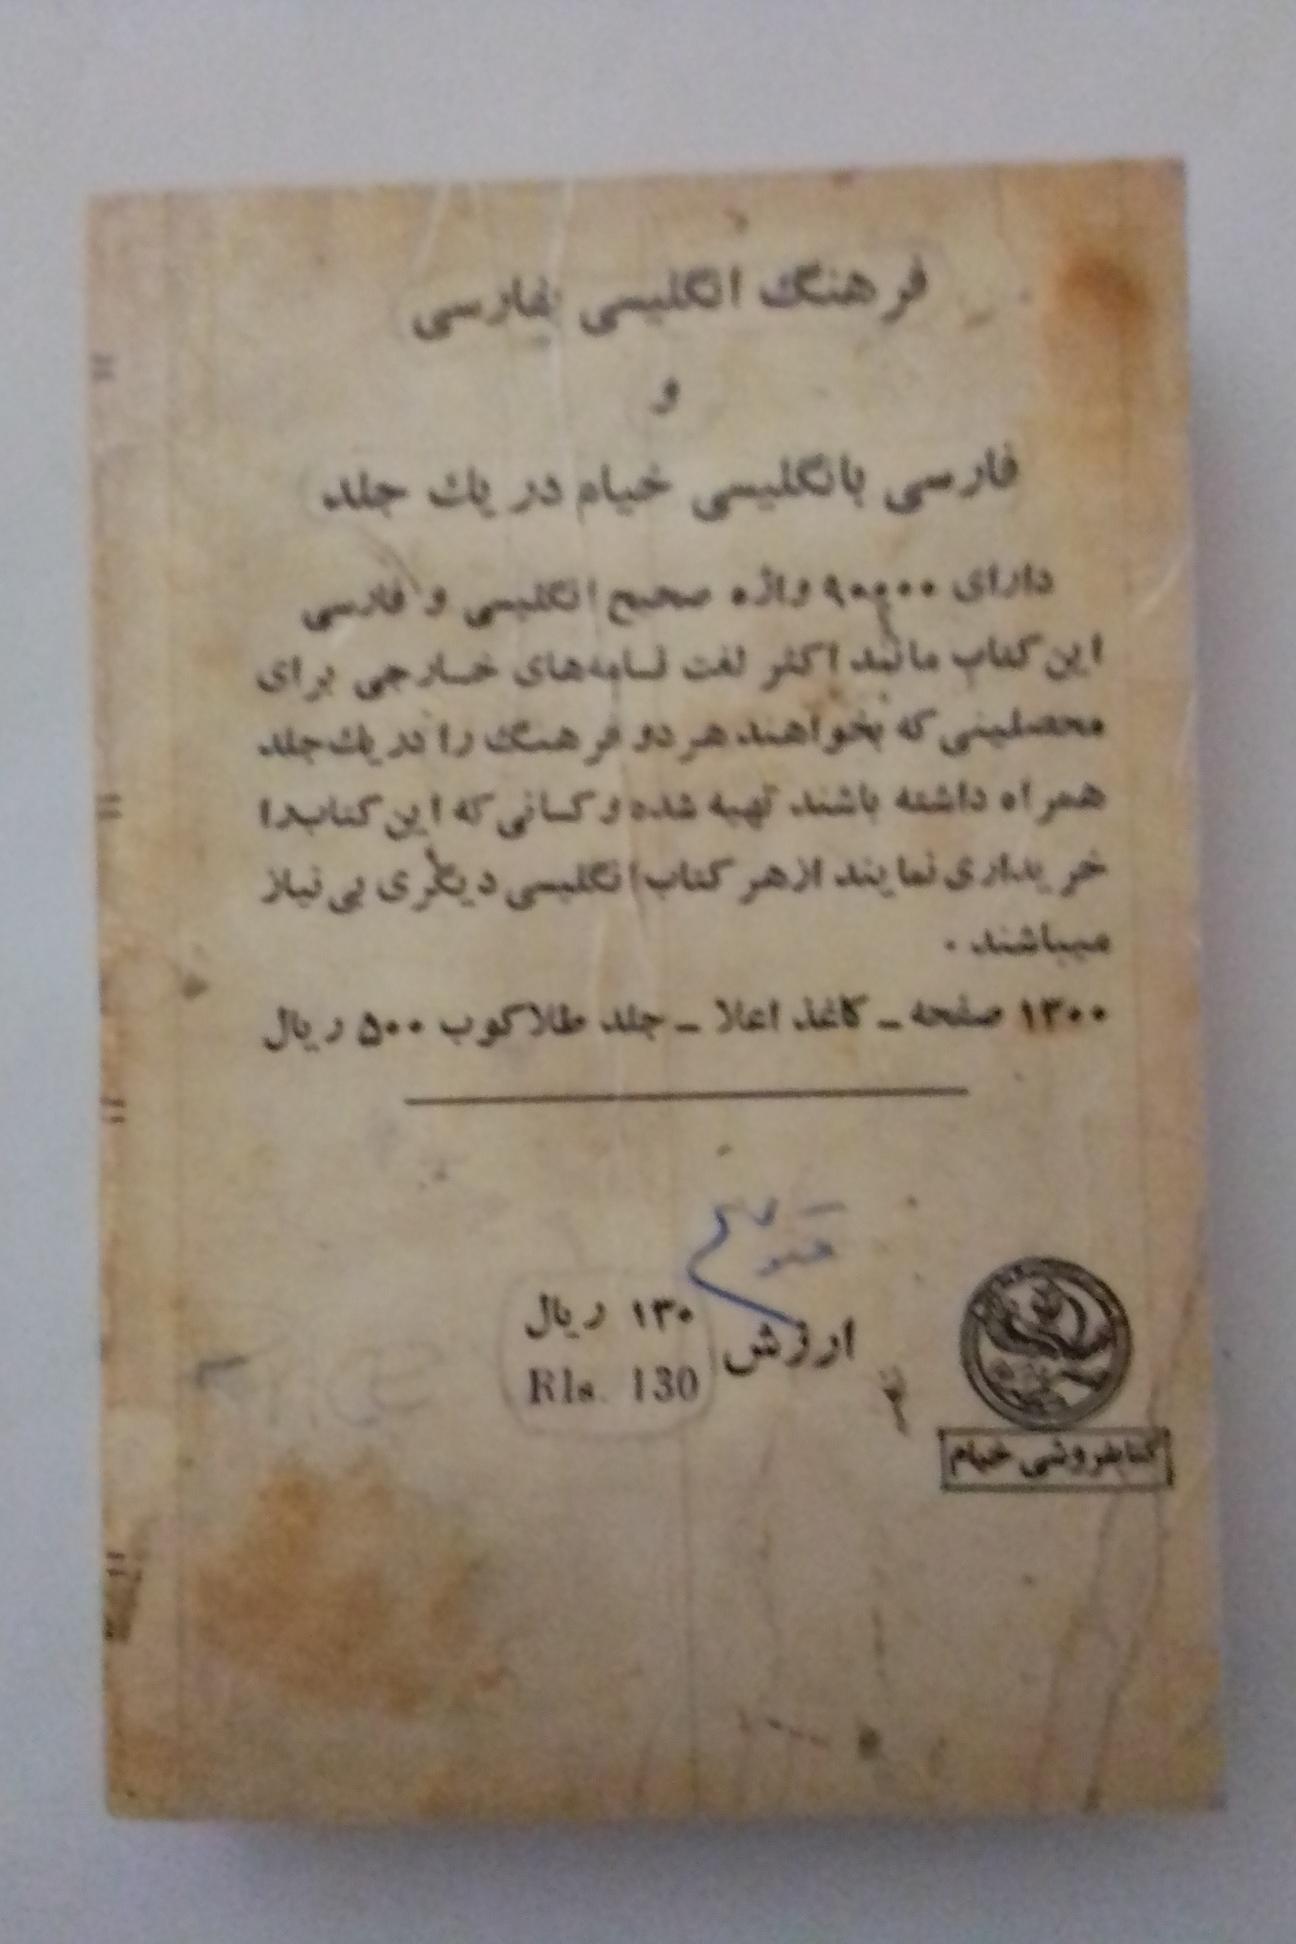 فرهنگ انگلیسی بفارسی
و
فارسی بانگلیسی خیام در یك جلد
دارای ۹۰۰۰۰ واژه صحیح انگلیسی و فارسی
این کتاب مانند اکثر لغت نامه‌های خارجی برای
محصلینی که بخواهند هر دو فرهنگ را در یك جلد
همراه داشته باشند تهیه شده و کسانی که این کتاب را
خریداری نمایند از هر کتاب انگلیسی دیگری بی نیاز
میباشند .
۱۳۰۰ صفحه ـ کاغذ اعلا ـ جلد طلاکوب ۵۰۰ ریال
ارزش ۱۳۰ ریال
Rls. 130
کتابفروشی خیام